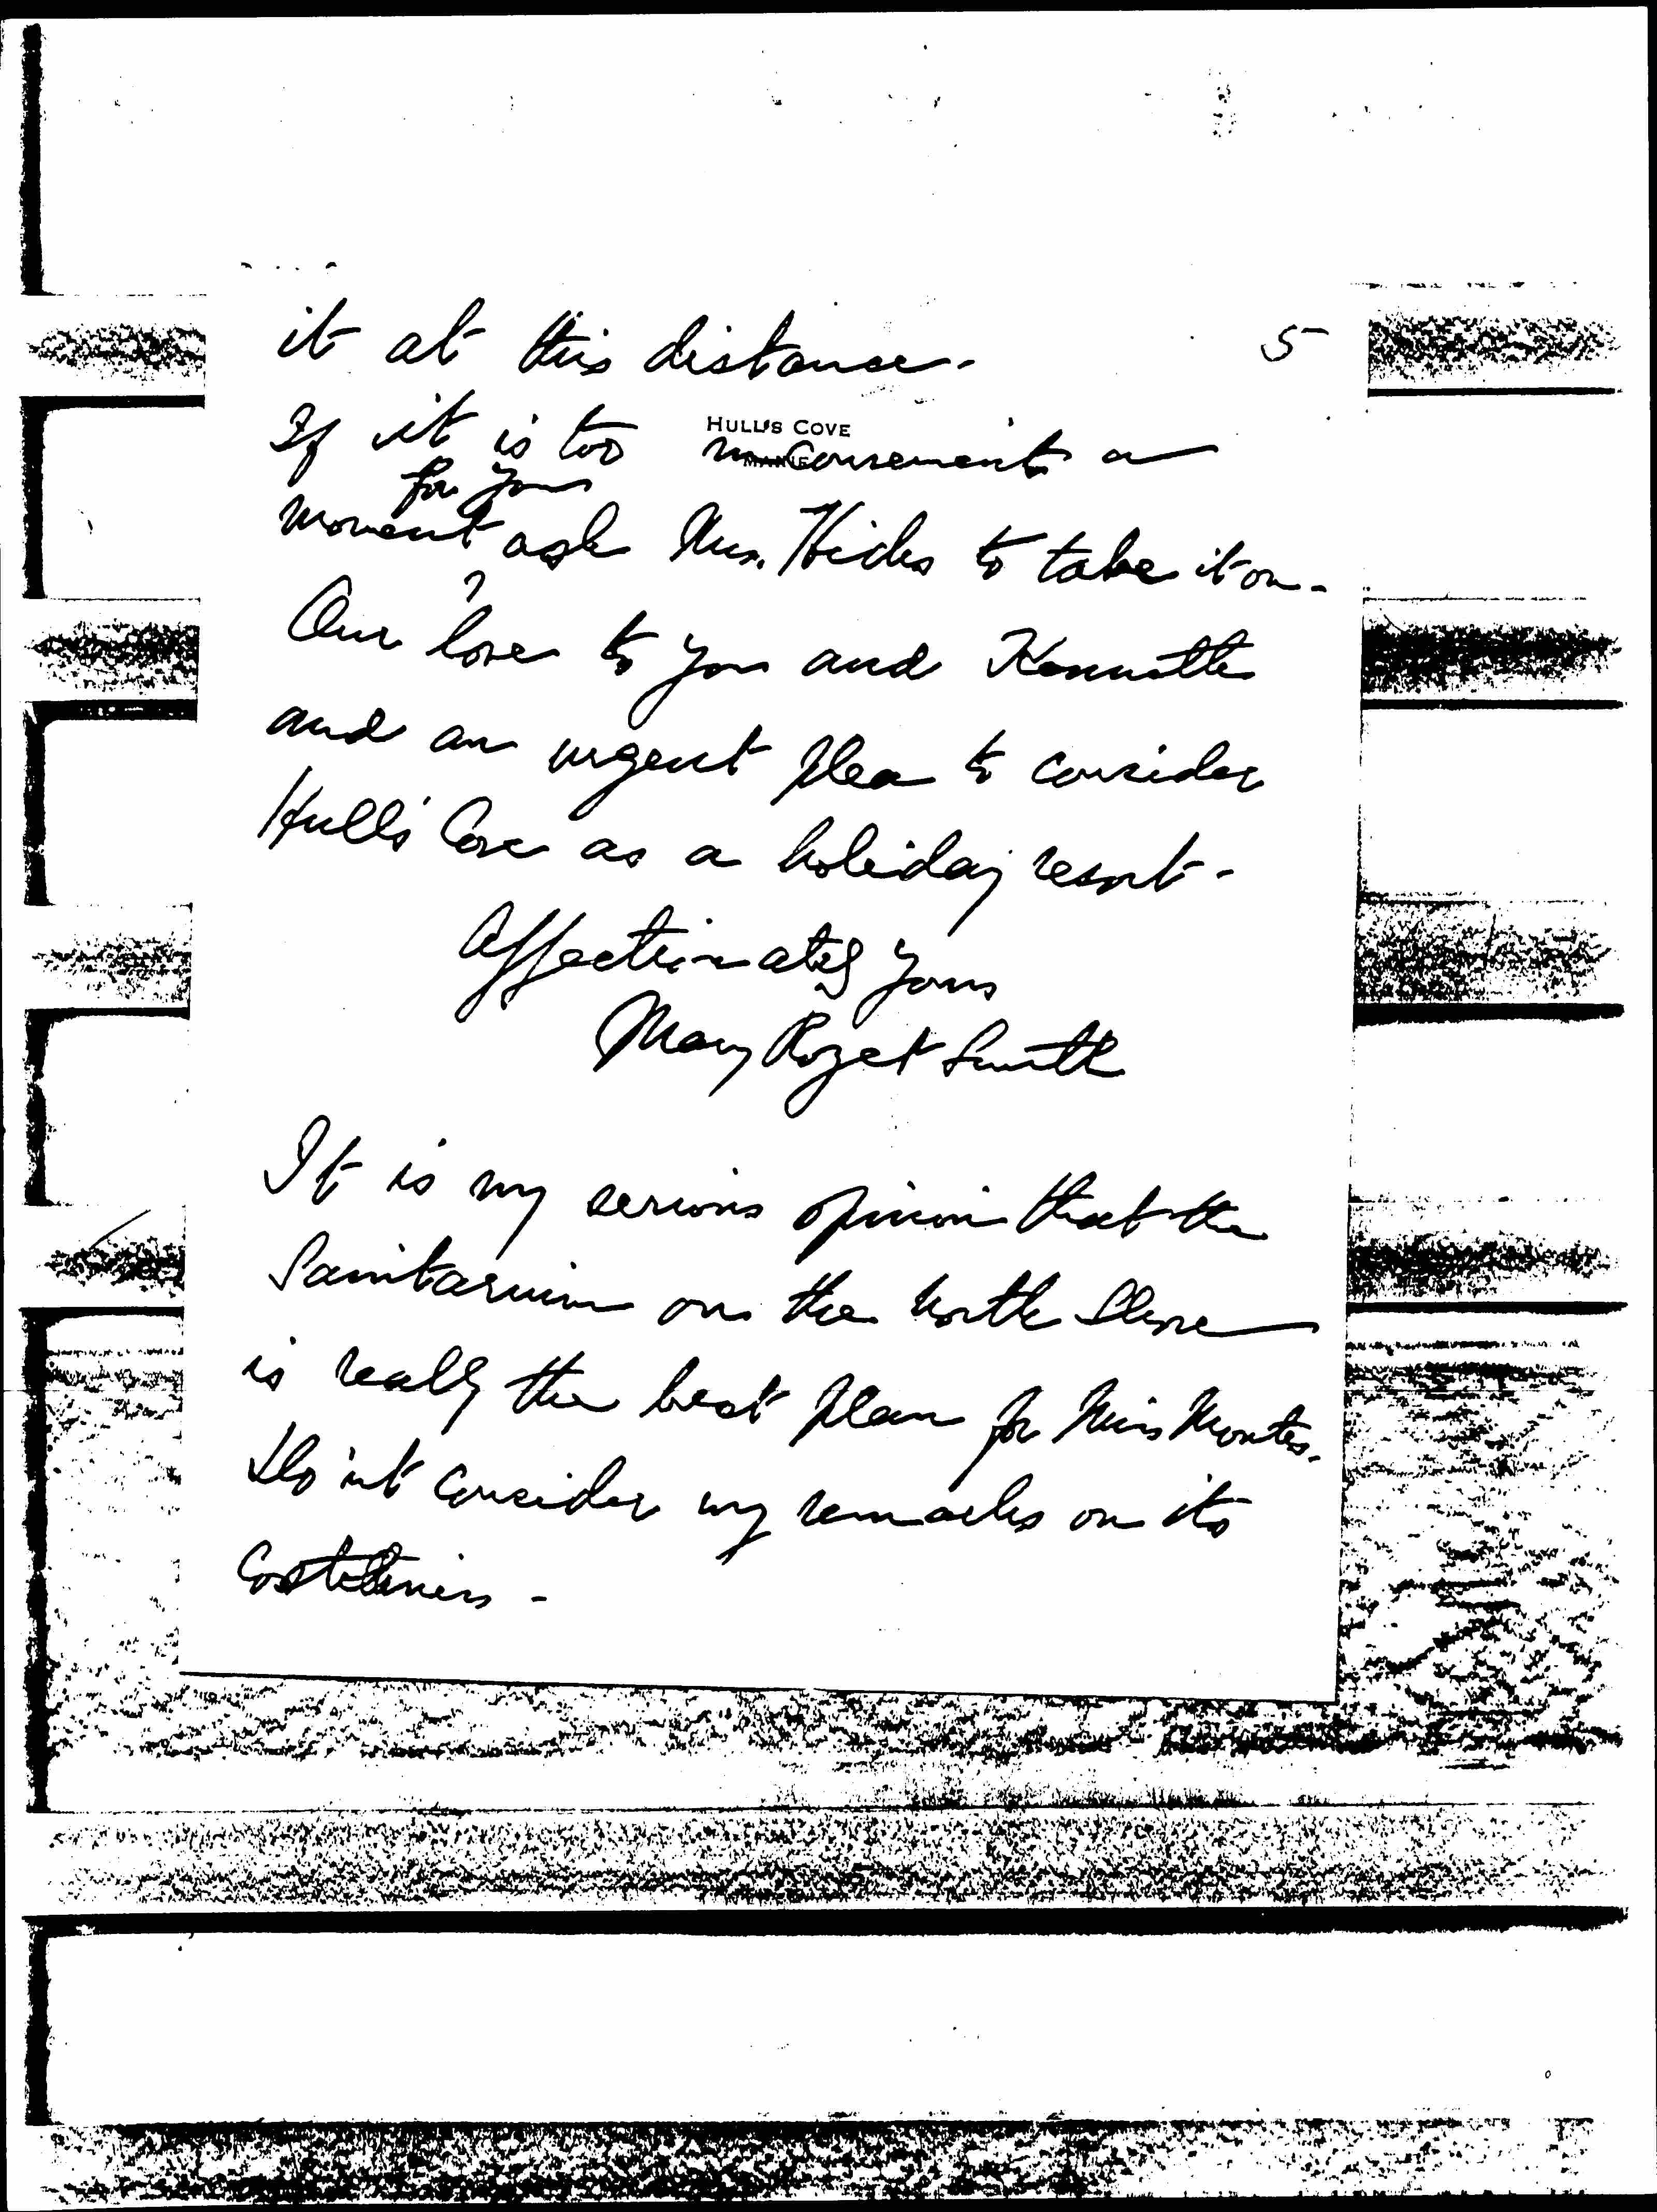 it at this distance - 5
HULL'S COVE
MAINE
If it is too inconvenient a
for you
moment ask Mrs. Hicks to take it on -
Our love to you and Kenneth
and an urgent plea to consider
Hull's Cove as a holiday resort -
Affectionately yours
Mary Rozet Smith
It is my serious opinion that the
Sanitarium on the North Shore
is really the best plan for Miss Montes.
Do'nt consider my remarks on its
Costliness -